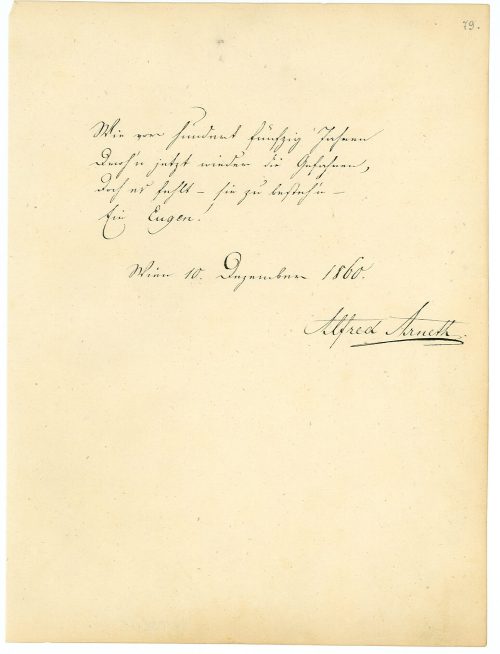 79.
Wie vor hundert fünfzig Jahren
Droh'n jetzt wieder die Gefahren,
Doch es fehlt – sie zu besteh'n –
Ein Eugen!
Wien 10. Dezember 1860.
Alfred Arneth.